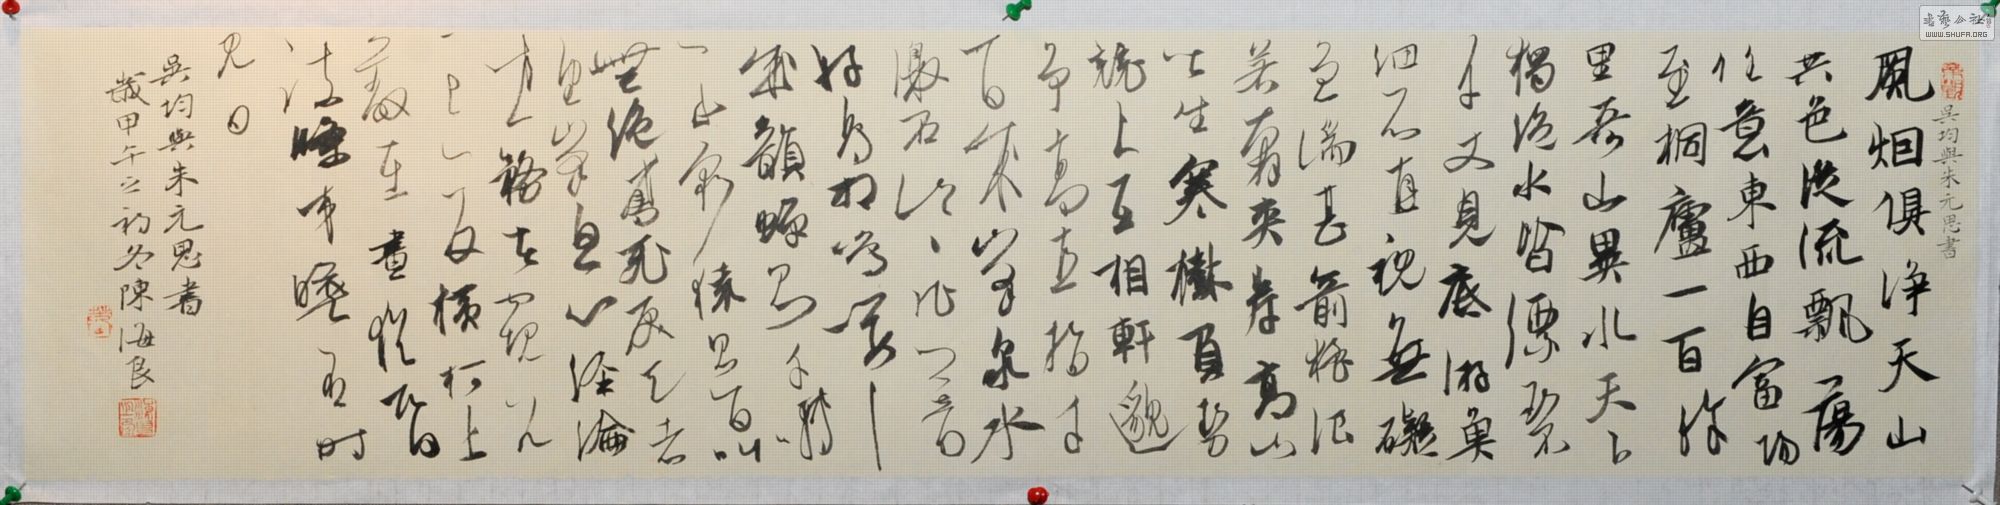 吳均與朱元思書
風烟俱净天山
共色從流飄蕩
任意東西自富陽
至桐廬一百許
里奇山異水天下
獨絕水皆漂碧
千丈見底游魚
細石直視無礙
急湍甚箭猛浪
若奔夾岸高山
皆生寒樹負勢
競上互相軒邈
争高直指千
百成峰泉水
激石泠泠作響
好鳥相鳴嚶嚶
成韻蟬則千轉
不窮猿則百叫
無絕鳶飛戾天者
望峰息心經綸
世務者窺谷
忘反橫柯上
蔽在晝猶昏
疏條交映有時
見日
吳均與朱元思書
歲甲午之初冬陳海良
书艺公社
WWW.SHUFA.ORG